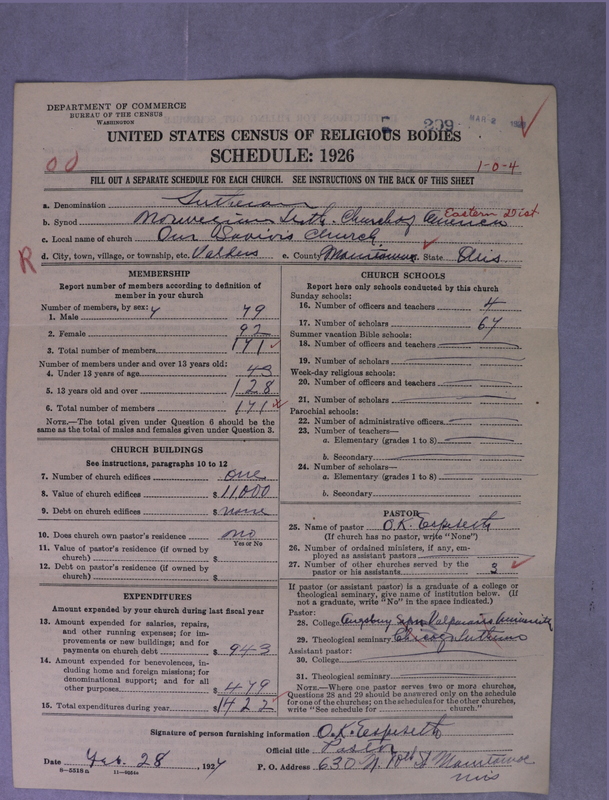 DEPARTMENT OF COMMERCE
BUREAU OF THE CENSUS
WASHINGTON
209 MAR 2
UNITED STATES CENSUS OF RELIGIOUS BODIES
SCHEDULE: 1926
1-0-4
FILL OUT A SEPARATE SCHEDULE FOR EACH CHURCH. SEE INSTRUCTIONS ON THE BACK OF THIS SHEET
a. Denomination Lutheran
b. Synod Norwegian Luth. Church of America Eastern Dist
c. Local name of church Our Saviors Church
R d. City, town, village, or township, etc. Valders e. County Manitowoc State Wis
MEMBERSHIP
Report number of members according to definition of
member in your church
Number of members, by sex:
1. Male 79
2. Female 92
3. Total number of members 171
Number of members under and over 13 years old:
4. Under 13 years of age 43
5. 13 years old and over 128
6. Total number of members 171
NOTE.—The total given under Question 6 should be
same as the total of males and females given under Question 3.
CHURCH BUILDINGS
See instructions, paragraphs 10 to 12
7. Number of church edifices one
8. Value of church edifices $11000
9. Debt on church edifices $none
10. Does church own pastor's residence no
Yes or No
11. Value of pastor's residence (if owned by
church) $
12. Debt on pastor's residence (if owned by
church) $
EXPENDITURES
Amount expended by your church during last fiscal year
13. Amount expended for salaries, repairs,
and other running expenses; for im-
provements or new buildings; and for
payments on church debt $943
14. Amount expended for benevolences, in-
cluding home and foreign missions; for
denominational support; and for all
other purposes $479
15. Total expenditures during year $1422
CHURCH SCHOOLS
Report here only schools conducted by this church
Sunday schools:
16. Number of officers and teachers 4
17. Number of scholars 67
Summer vacation Bible schools:
18. Number of officers and teachers
19. Number of scholars
Week-day religious schools:
20. Number of officers and teachers
21. Number of scholars
Parochial schools:
22. Number of administrative officers
23. Number of teachers—
a. Elementary (grades 1 to 8)
b. Secondary
24. Number of scholars—
a. Elementary (grades 1 to 8)
b. Secondary
PASTOR
25. Name of pastor O.K. Espeseth
(If church has no pastor, write "None")
26. Number of ordained ministers, if any, em-
ployed as assistant pastors
27. Number of other churches served by the
pastor or his assistants 3
If pastor (or assistant pastor) is a graduate of a college or
theological seminary, give name of institution below. (If
not a graduate, write "No" in the space indicated.)
Pastor:
28. College Augsburg Valparaiso University
29. Theological seminary Chicago Lutheran
Assistant pastor:
30. College
31. Theological seminary
NOTE.—Where one pastor serves two or more churches,
Questions 28 and 29 should be answered only on the schedule
for one of the churches; on the schedules for the other churches,
write "See schedule for church."
Signature of person furnishing information O.K. Espeseth
Official title Pastor
Date Feb. 28, 1927 P. O. Address 630 N. 10th St Manitowoc
Wis
8—5518 a